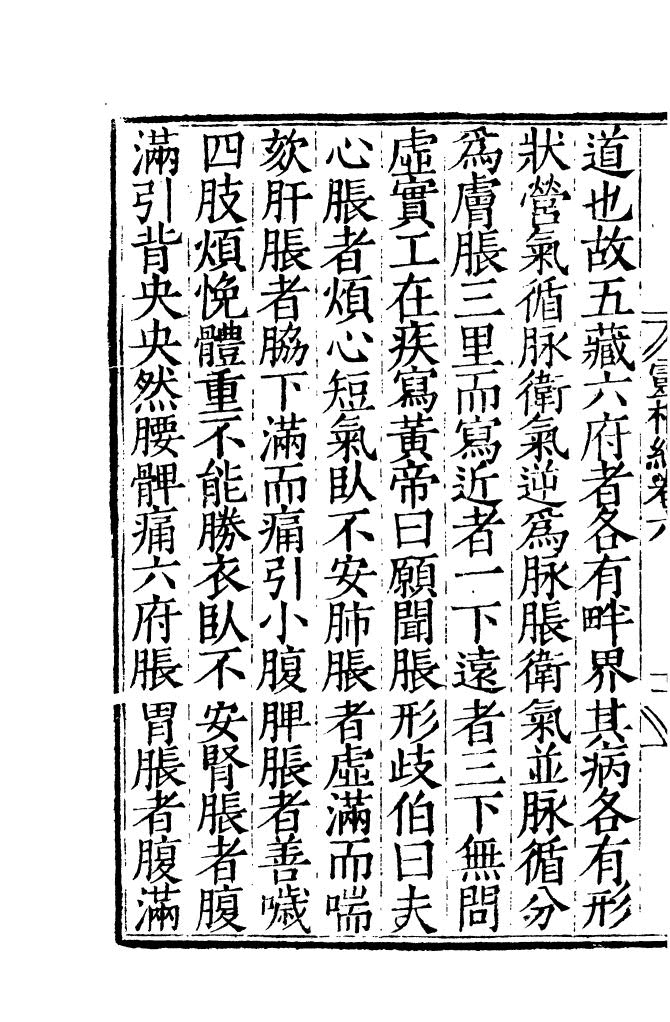 道也故五藏六府者各有畔界其病各有形
狀營氣循脉衛氣逆爲脉脹衛氣並脉循分
爲膚脹三里而寫近者一下遠者三下無問
虛實工在疾寫黃帝曰願聞脹形歧伯曰夫
心脹者煩心短氣臥不安肺脹者虛滿而喘
欬肝脹者脇下滿而痛引小腹脾脹者善噦
四肢煩悗體重不能勝衣臥不安腎脹者腹
滿引背央央然腰髀痛六府脹胃脹者腹滿